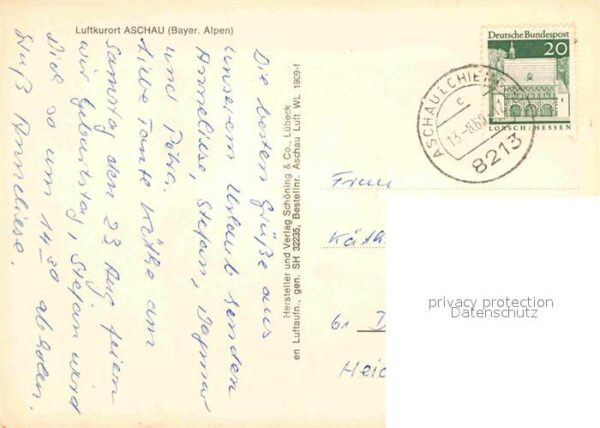 Luftkurort ASCHAU (Bayer. Alpen)
Die besten Grüße aus
unserem Urlaub senden
Anneliese, Stefan, Dagmar
und Petra.
Liebe Tante Käthe am
Samstag den 23 Aug feiern
wir Geburtstag, Stefan wird
Dich so um 14 30 abholen.
Gruß Anneliese.
Hersteller und Verlag Schöning & Co., Lübeck
en Luftaufn., gen. SH 32235, Bestellnr. Aschau Luft WL 1909-f
Deutsche Bundespost
20
LORSCH/HESSEN
ASCHAU I. CHIEM
c
13.-8.69
8213
Frau
Käth
61 D
Heid
privacy protection
Datenschutz